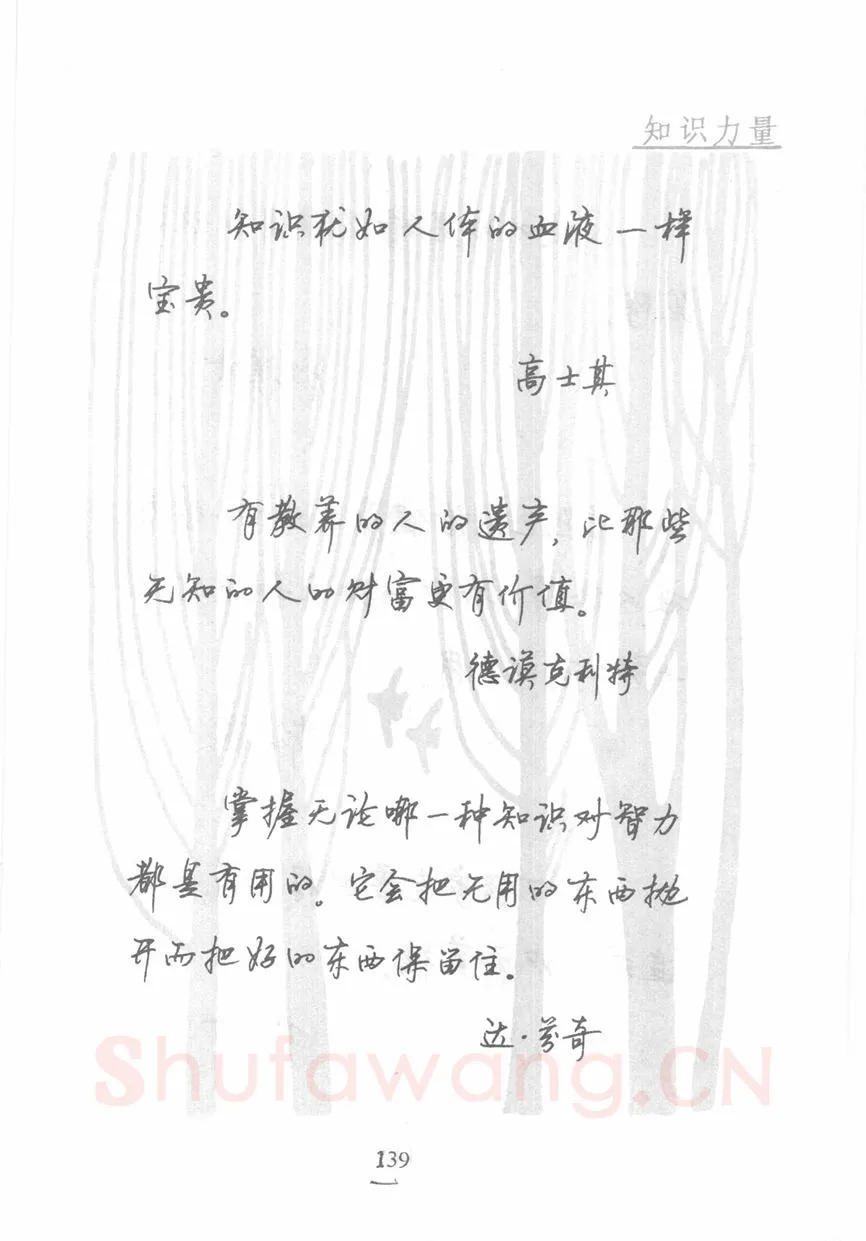 知识力量
知识犹如人体的血液一样
宝贵。
高士其
有教养的人的遗产，比那些
无知的人的财富更有价值。
德谟克利特
掌握无论哪一种知识对智力
都是有用的。它会把无用的东西抛
开而把好的东西保留住。
达·芬奇
Shufawang.CN
139